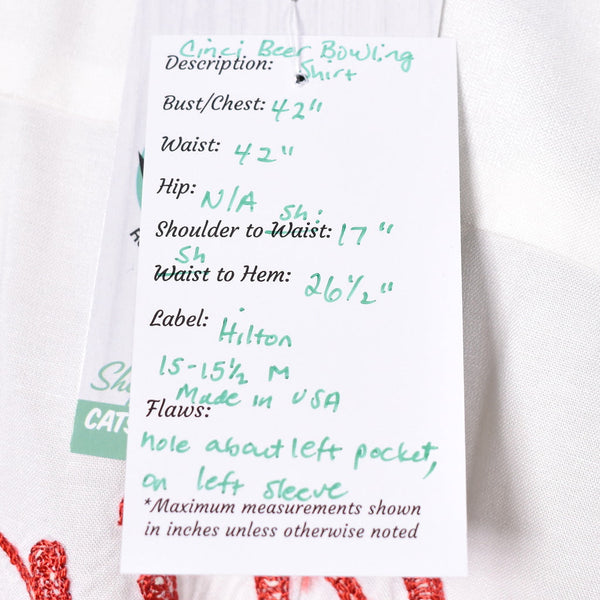 Cinci Beer Bowling
Description: Shirt
Bust/Chest: 42"
Waist: 42"
Hip: N/A
Sh:
Shoulder to Waist: 17"
Sh
Waist to Hem: 26½"
Label: Hilton
15-15½ M
Made in USA
Flaws:
hole about left pocket,
on left sleeve
*Maximum measurements shown
in inches unless otherwise noted
CATS